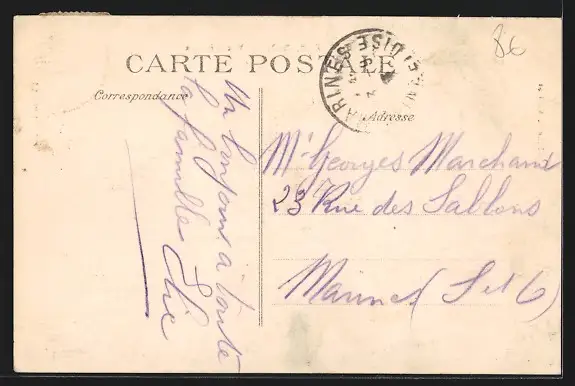 86
CARTE POSTALE
Correspondance
Adresse
MARINES
Un bonjour a toute
la famille
Mr Georges Marchand
23 Rue des Sablons
Marines (S et O)